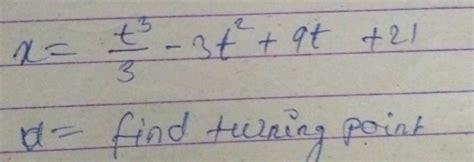 x = t³/3 - 3t² + 9t + 21
d = find turning point